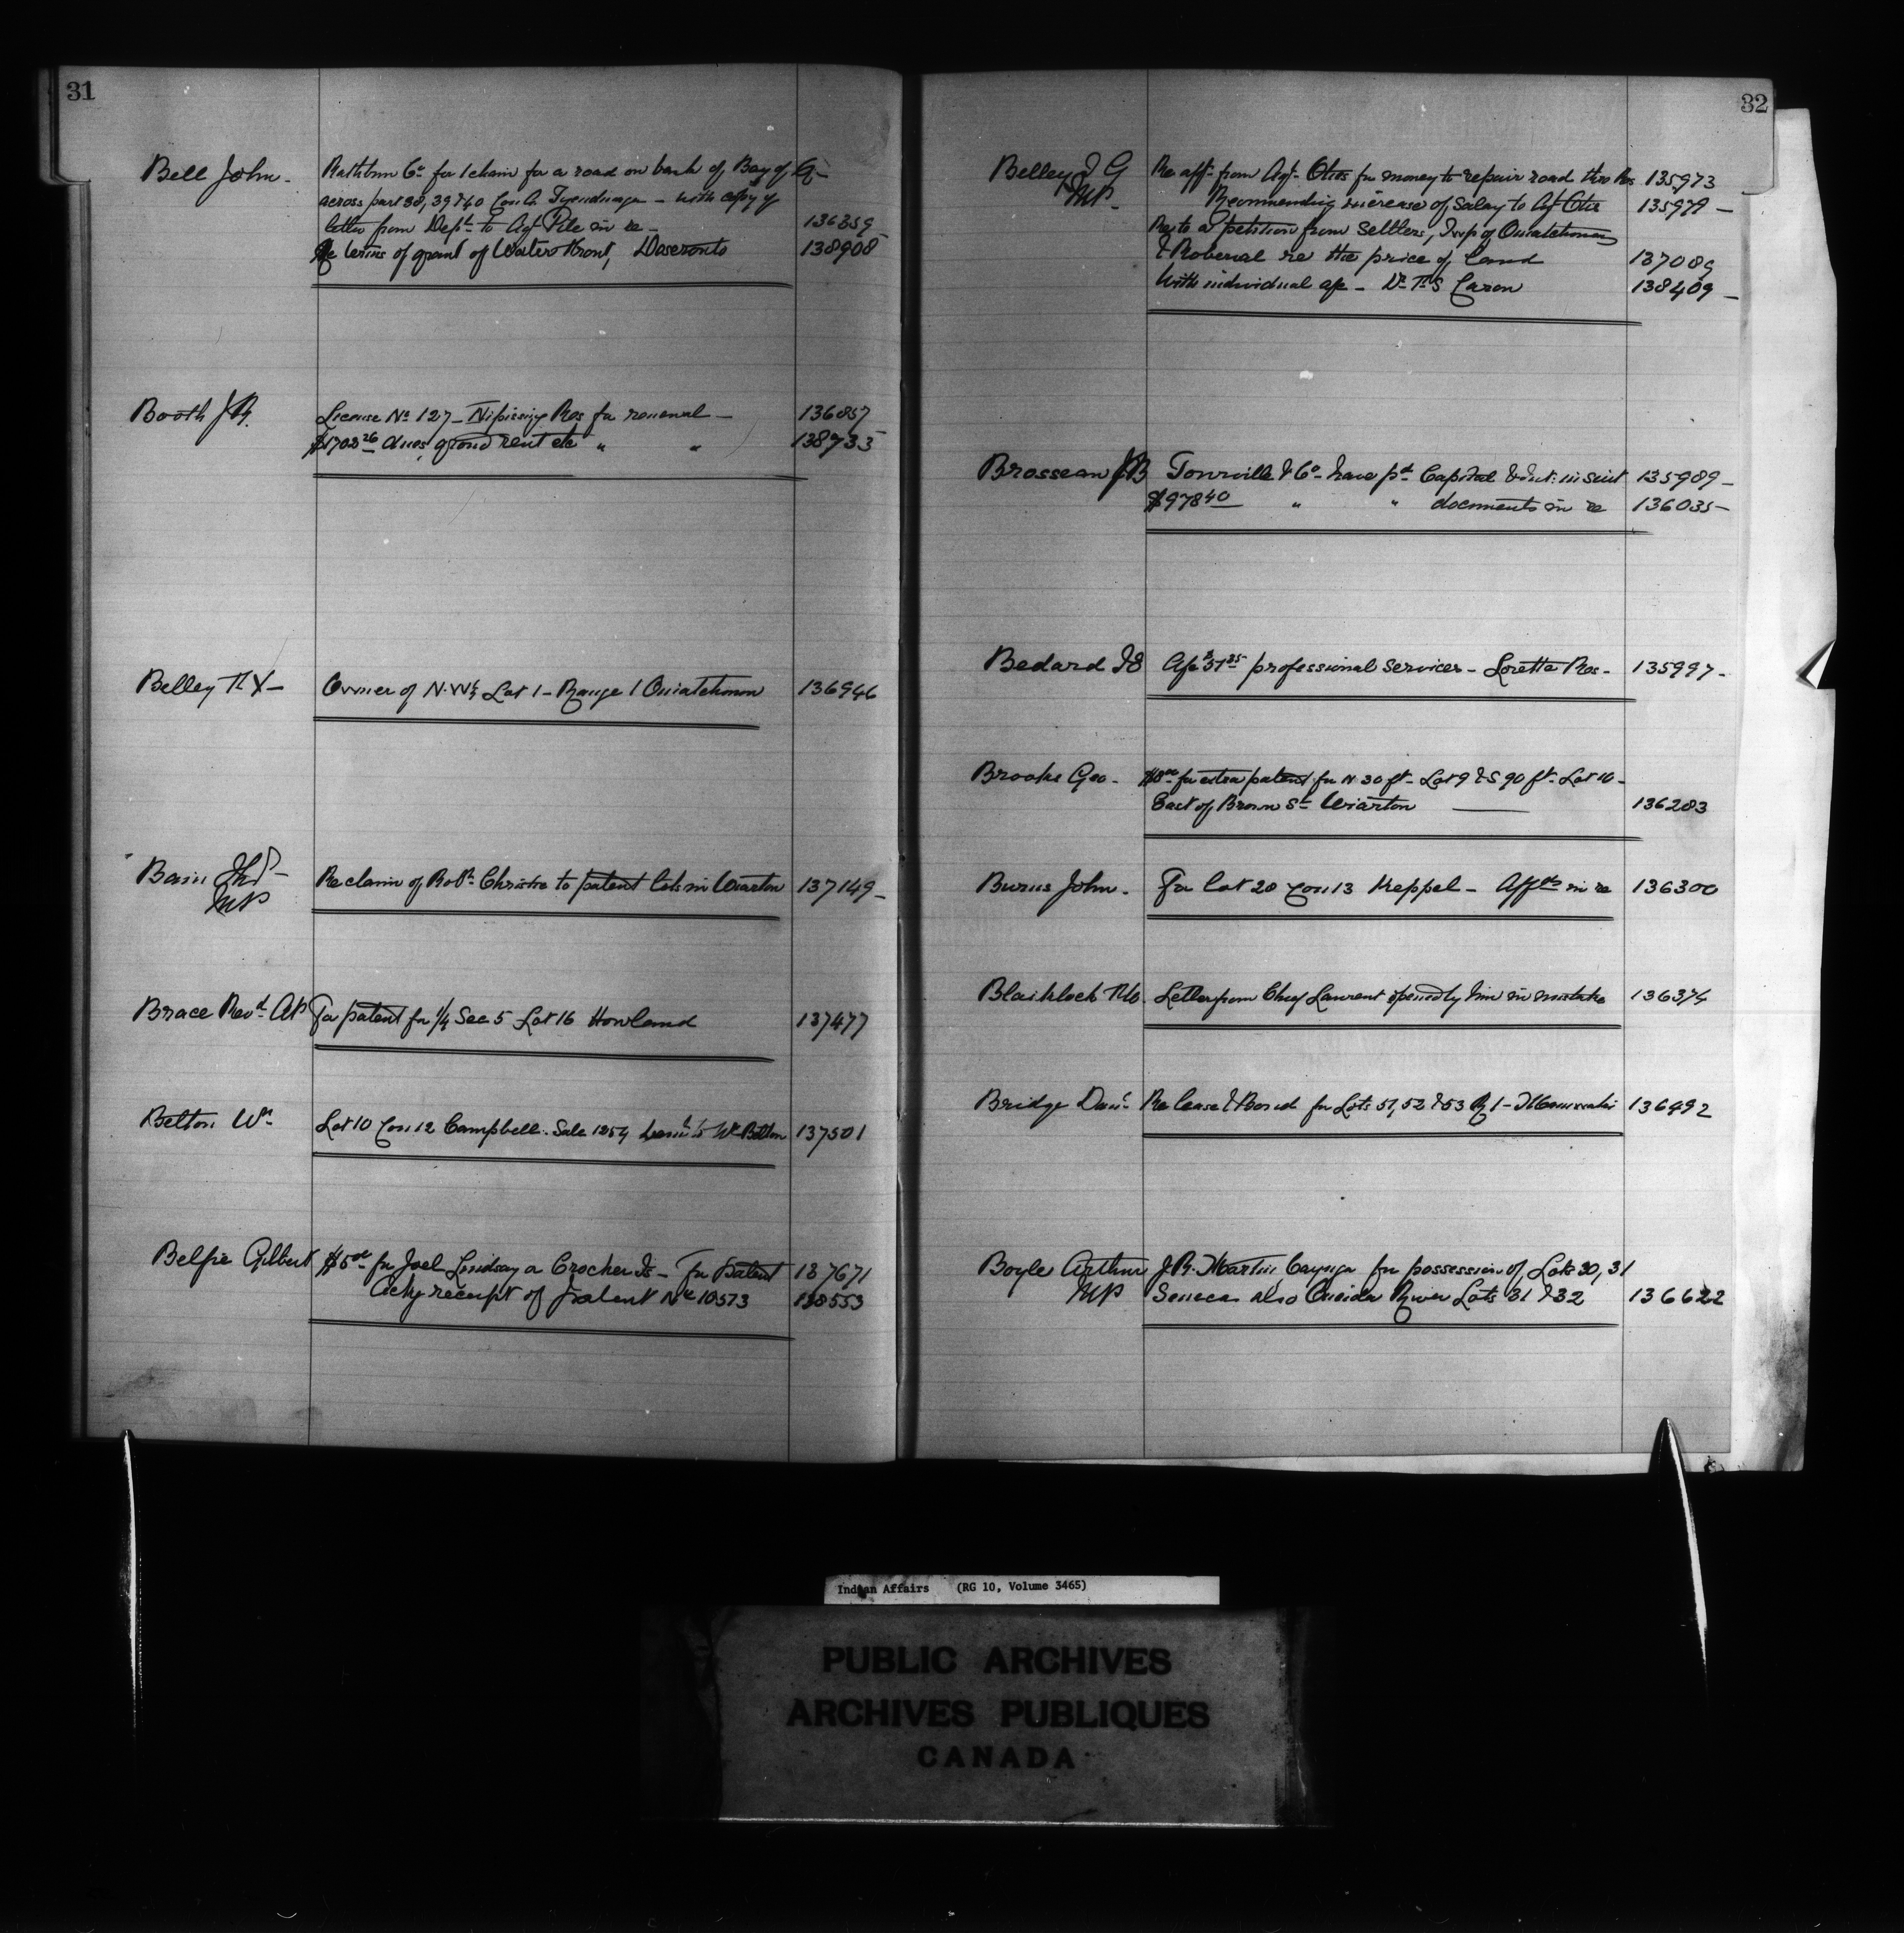 31
Bell John - Rathbun Co for 1 chain for a road on bank of Bay of Q-
across part 38, 39 & 40 Con A Tyendinaga - with copy of
letter from Dept. to Agt Pile in re - 136359
Re terms of grant of Water Front, Deseronto 138908
Booth J.R. License No 127 - Nipissing Res for renewal - 136857
$1702 26 dues, ground rent etc " " 138933
Belley T X - Owner of N.W½ Lot 1 - Range 1 Ouiatchouan 136946
Bain Thos - Re claim of Robt. Christie to patent lots in Wiarton 137149 -
MP
Brace Revd. AP For patent for ¼ Sec 5 Lot 16 Howland 137477
Belton Wm Lot 10 Con 12 Campbell. Sale 1254 to Wm Belton 137501
Belfie Gilbert $5 00 for Joel Lindsay a Crocher Is - For patent 137671
Ackg receipt of patent No 10573 138553
32
Belley J G Re aff. from Agt. Otis for money to repair road thro Res 135973
MP - Recommending increase of Salary to Agt Otis 135979 -
Re to a petition from Settlers, Twp of Ouiatchouan
& Roberval re the price of Land 137089
With individual a/c - Dr T S Caron 138409 -
Brosseau J B Tourville & Co - have pd Capital & Int: in Suit 135989 -
$978 40 " " documents in re 136035 -
Bedard J E A/c $51 25 professional services - Lorette Res - 135997 -
Brooks Geo - $8 00 for extra patent for N 30 ft - Lot 9 & S 90 ft - Lot 10 -
East of Brown St Wiarton 136203
Burns John - For lot 20 Con 13 Keppel - Affts in re 136300
Blaiklock Letter from Chief Laurent opened by him in mistake 136374
Bridge Danl. Release & Bond for Lots 51, 52 & 53 R 1 - 136492
Boyle Arthur J. R. Martin, Cayuga for possession of Lots 30, 31
MP Seneca also Oneida River Lots 31 & 32 136622
Indian Affairs (RG 10, Volume 3465)
PUBLIC ARCHIVES
ARCHIVES PUBLIQUES
CANADA